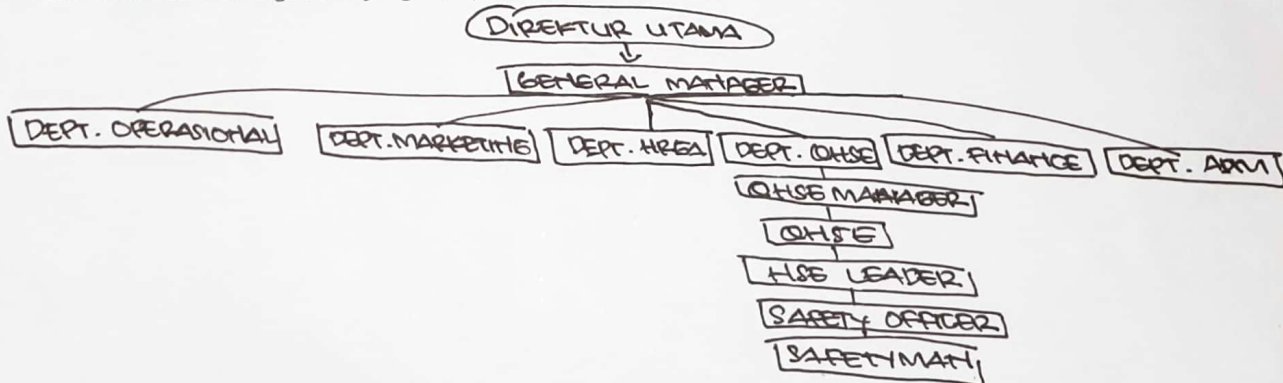 DIREKTUR UTAMA
GENERAL MANAGER
DEPT. OPERASIONAL
DEPT. MARKETING
DEPT. HRGA
DEPT. QHSE
DEPT. FINANCE
DEPT. ADM
QHSE MANAGER
QHSE
HSE LEADER
SAFETY OFFICER
SAFETYMAN